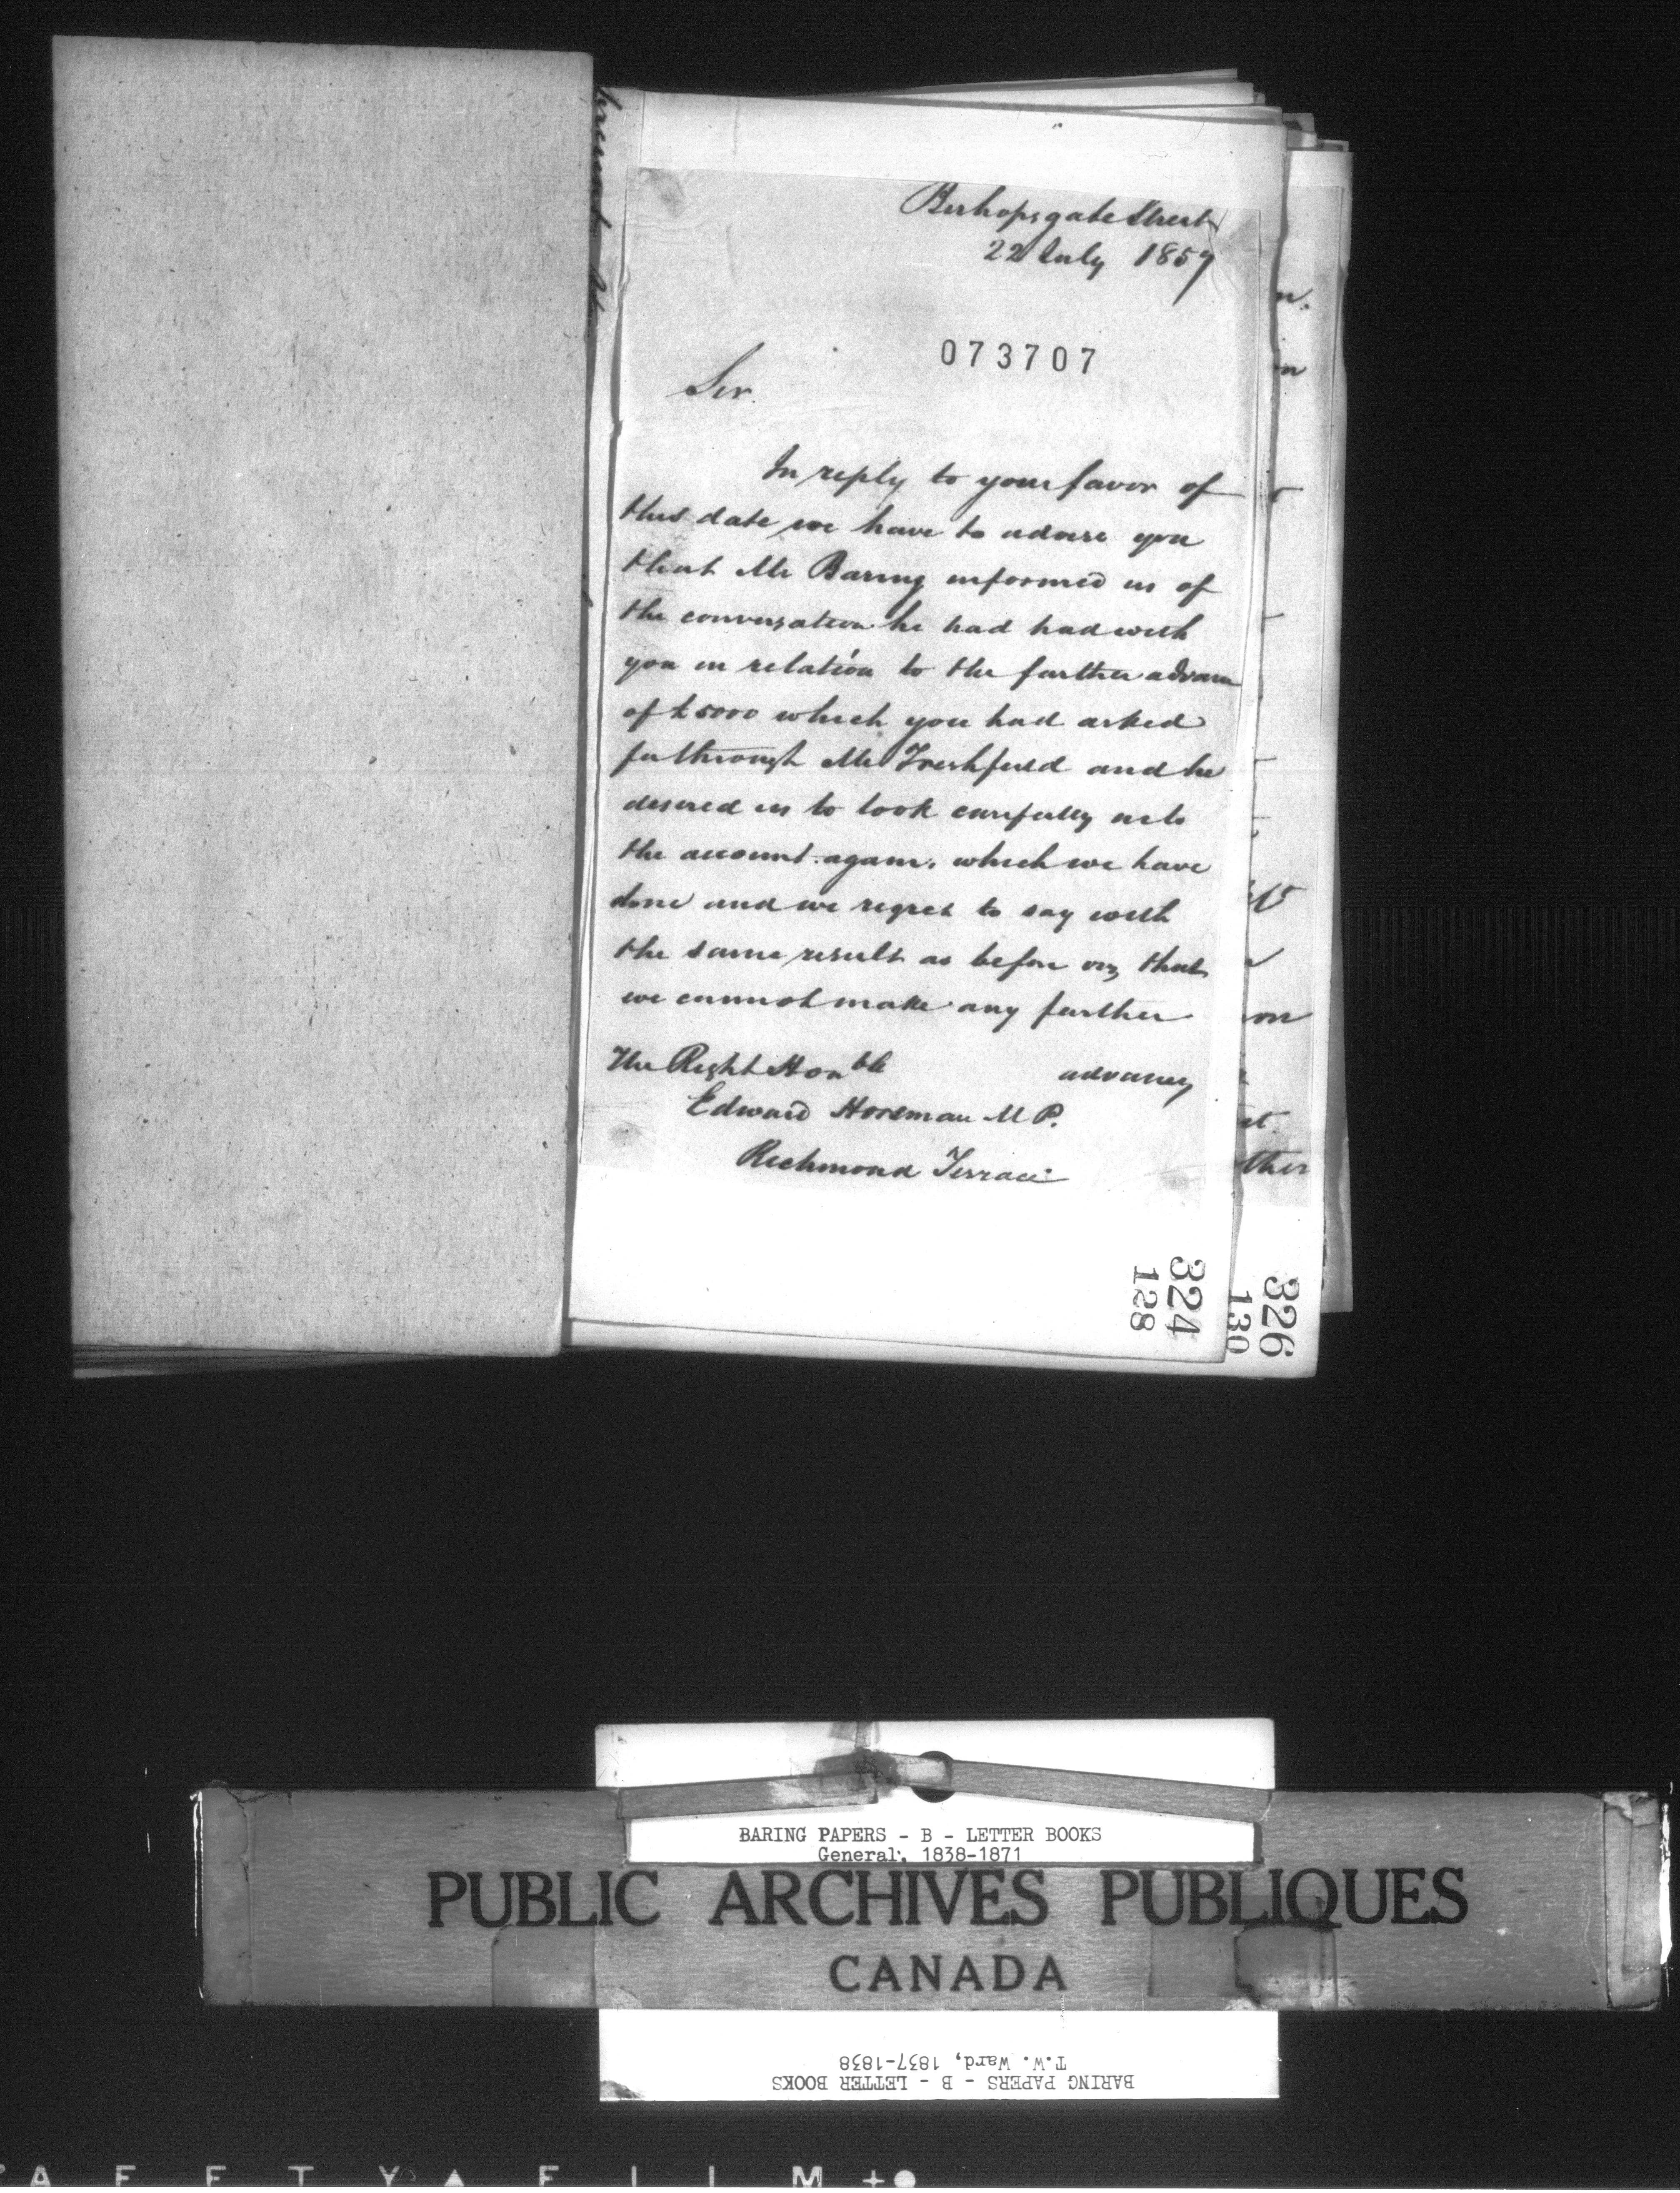 Bishopsgate Street
22 July 1857
073707
Sir.
In reply to your favor of
this date we have to advise you
that Mr Baring informed us of
the conversation he had had with
you in relation to the further advance
of £5000 which you had asked
for through Mr Freshfield and he
desired us to look carefully into
the account again, which we have
done and we regret to say with
the same result as before viz, that
we cannot make any further
advances
The Right Honble
Edward Horsman M P.
Richmond Terrace
324
128
326
130
n.
on
et.
ther
BARING PAPERS - B - LETTER BOOKS
General, 1838-1871
PUBLIC ARCHIVES PUBLIQUES
CANADA
BARING PAPERS - B - LETTER BOOKS
T.W. Ward, 1837-1838
A F E T Y ▲ F I L M +●